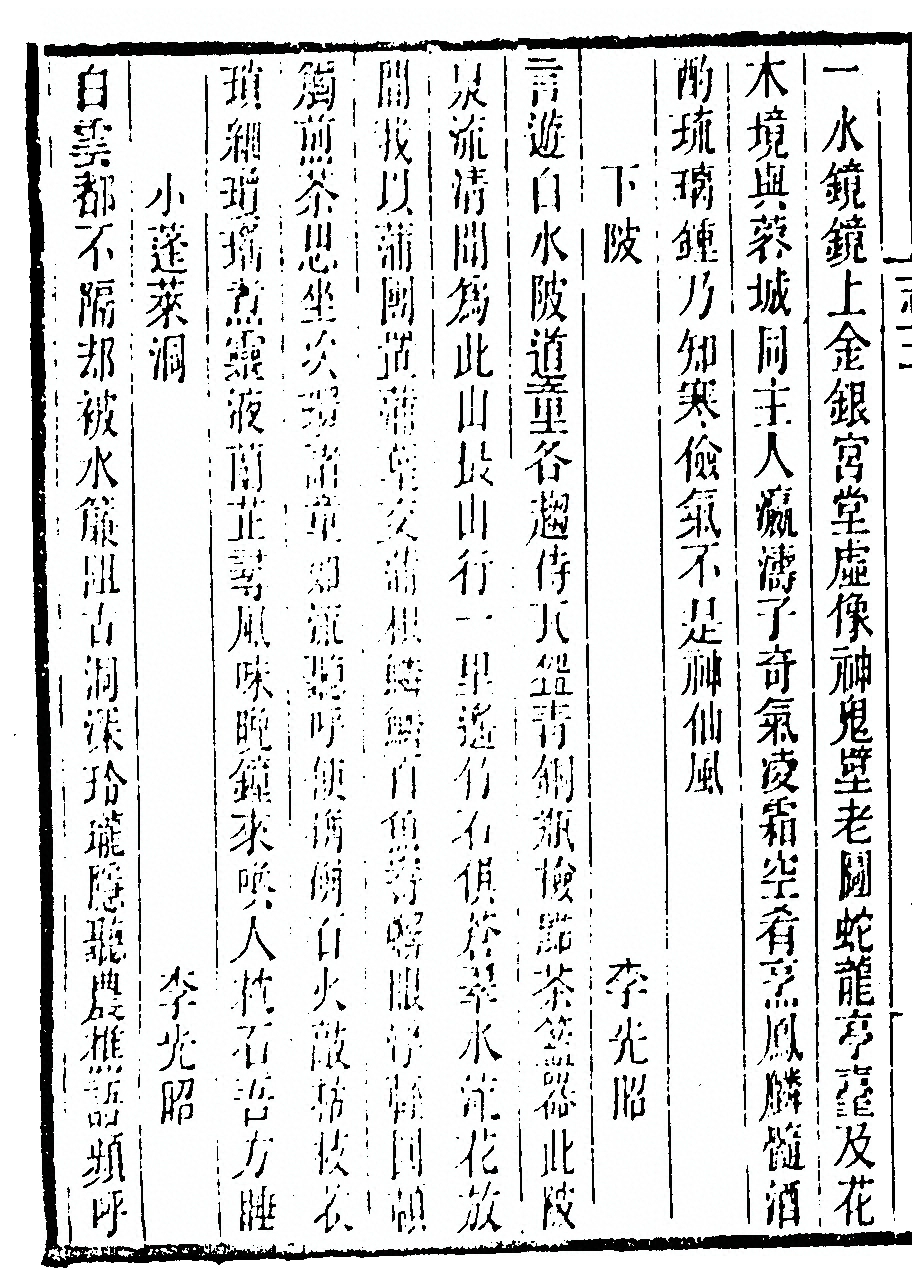 一水鏡鏡上金銀宮堂虛像神鬼壁老闘蛇龍亭臺及花
木境與蓉城同主人瀛濤子奇氣凌霜空肴烹鳳麟髓酒
酌琉璃鍾乃知寒儉氣不是神仙風
下陂 李光昭
言遊白水陂道童各趨侍瓦盎青銅瓶檢點茶竈器此陂
泉流清聞為此山最山行一里遙竹石俱蒼翠水流花放
間我以蒲團置蒲草交蒲根百魚蟹眼浮輕圓頓
觸煎茶思坐次環諸童如流聽呼使石火敲枝衣
瑣細煮靈液蘭芷尋風味晚鐘來喚人枕石吾方睡
小蓬萊洞 李光昭
白雲都不隔却被水簾阻古洞深玲瓏隱聽農樵語頻呼